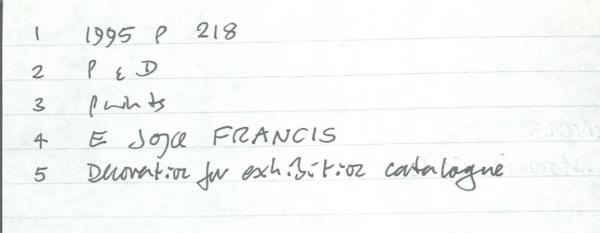 1 1995 P 218
2 P & D
3 Prints
4 E Joyce FRANCIS
5 Decoration for exhibition catalogue